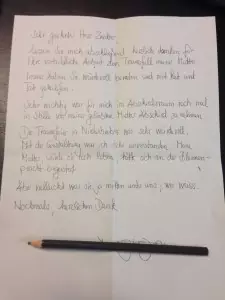 Sehr geehrter Herr
lassen Sie mich abschließend herzlich danken für
Ihre vorbildliche Arbeit den Trauerfall meiner Mutter
Immer haben Sie würdevoll beraten und mit Rat und
Tat geholfen.
Sehr wichtig war für mich im Abschiedsraum noch mal
in Stille von meiner geliebten Mutter Abschied zu nehmen.
Die Trauerfeier in war sehr würdevoll.
Mit der Gestaltung war ich sehr einverstanden. Meine
Mutter, würde sie noch leben, hätte sich an der Blumen-
pracht ergötzt.
Aber vielleicht war sie ja mitten unter uns, wer weiss.
Nochmals, herzlichen Dank